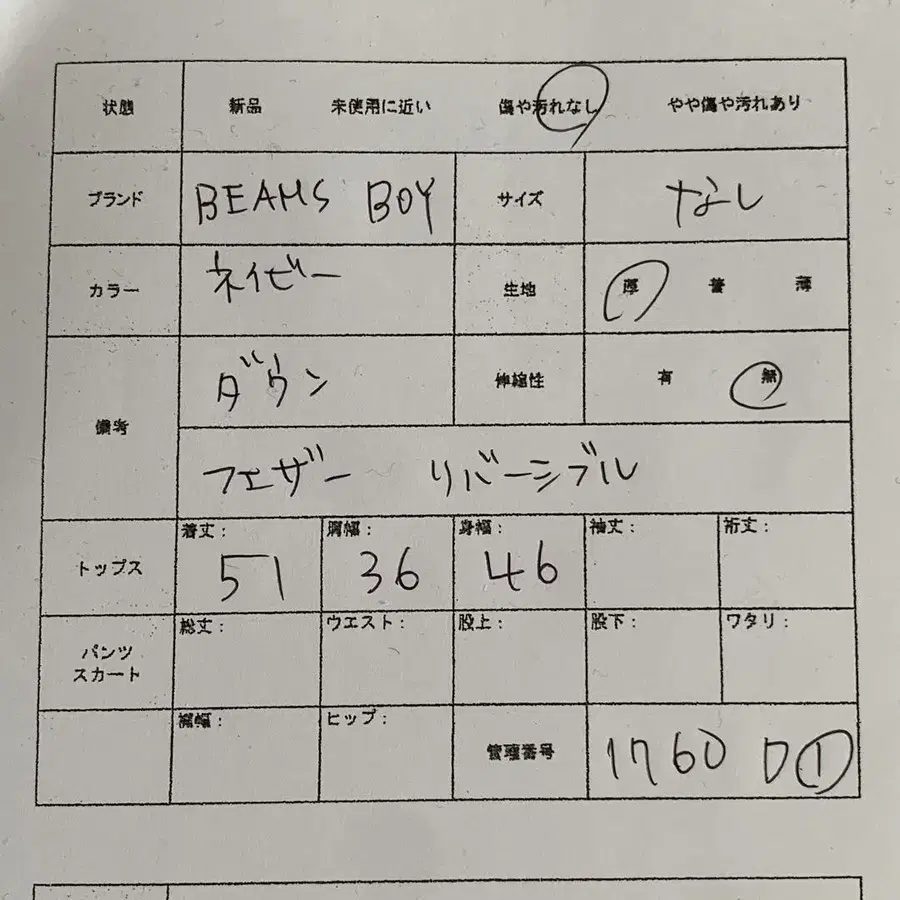 状態 新品 未使用に近い 傷や汚れなし やや傷や汚れあり
ブランド BEAMS BOY サイズ なし
カラー ネイビー 生地 厚 普 薄
備考 ダウン 伸縮性 有 無
フェザー リバーシブル
トップス 着丈: 51 肩幅: 36 身幅: 46 袖丈: 裄丈:
パンツ 総丈: ウエスト: 股上: 股下: ワタリ:
スカート
裾幅: ヒップ: 管理番号 1760 D①